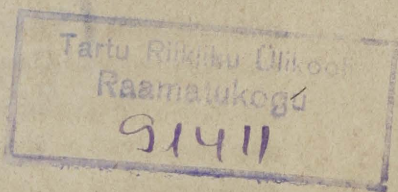 Tartu Riikliku Ülikooli
Raamatukogu
91411